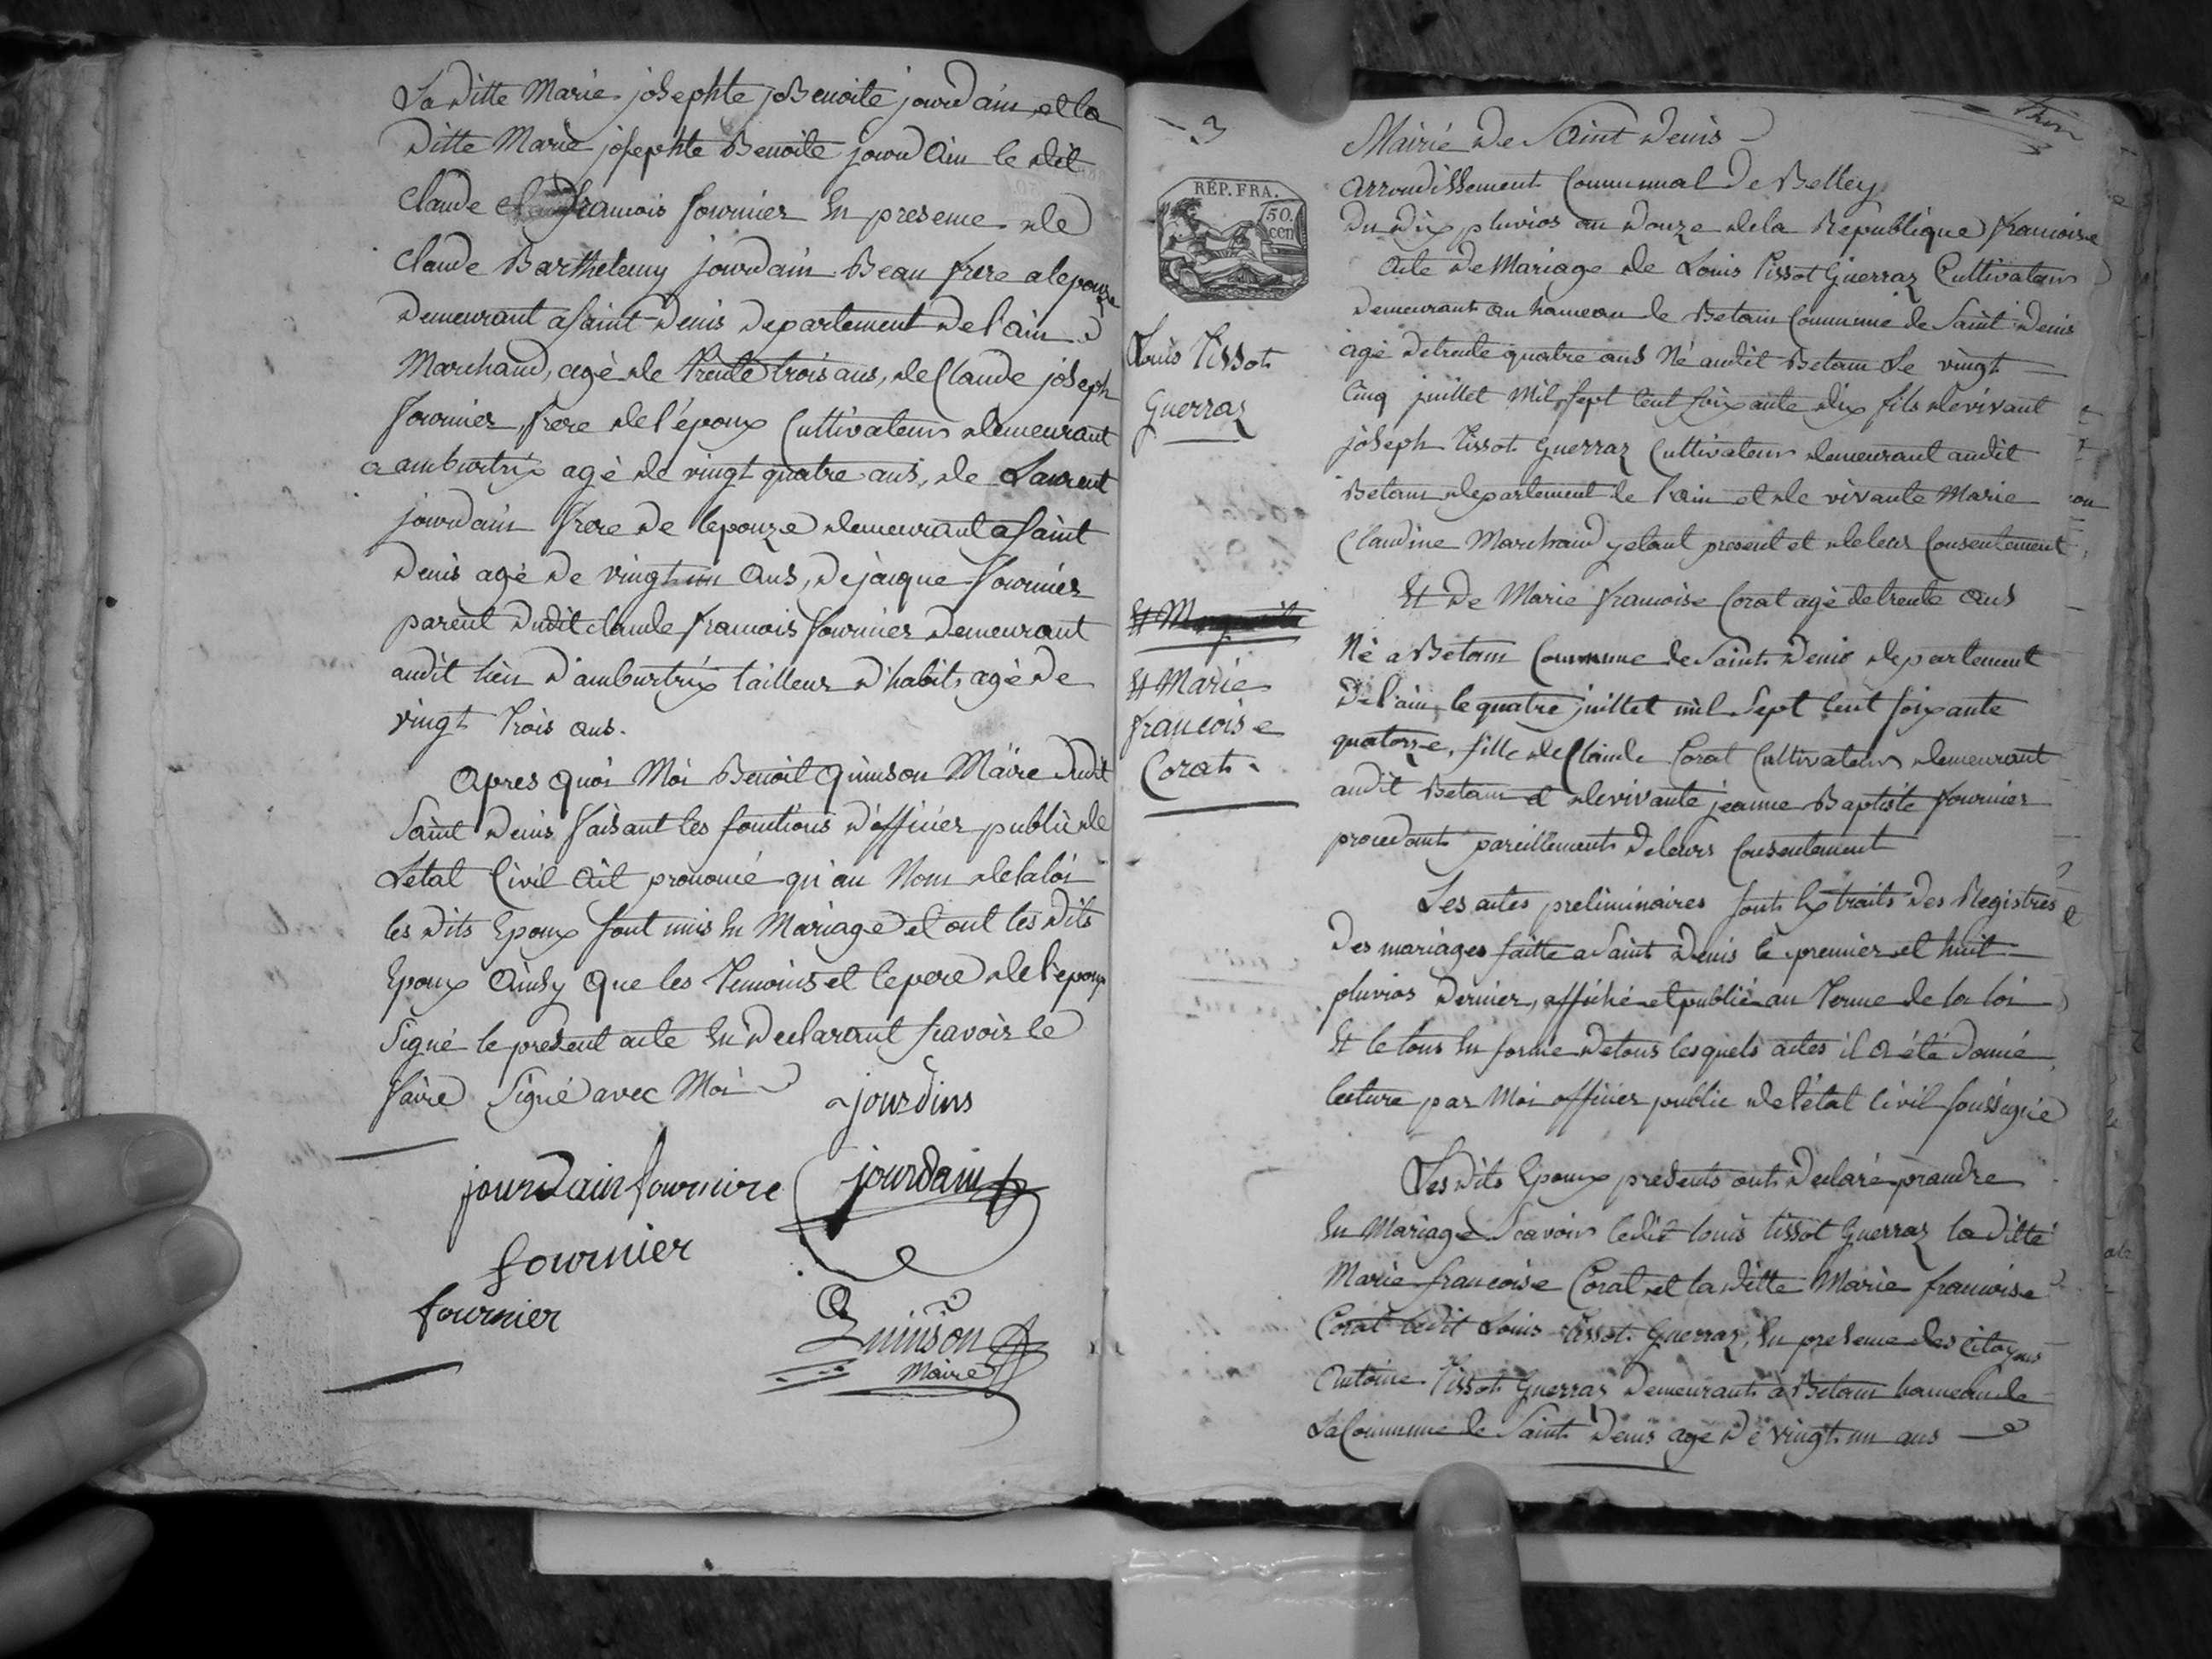 La ditte Marie josephte joBenoite jourdain et la
ditte Marie josephte Benoite jourdain le dit
Claude francois fournier En presence de
Claude Barthelemy jourdain Beau frere a lepouze
demeurant a saint Denis departement de l'ain
Marchand, agé de trente trois ans, de Claude joseph
fournier, frere de l'époux Cultivateur demeurant
a amburtrix agé de vingt quatre ans, de Laurent
jourdain frere de lepouze demeurant a saint
Denis agé de vingt un ans, de jacque fournier
parent dudit claude francois fournier demeurant
audit lieu d'amburtrix tailleur d'habit agé de
vingt trois ans.
Apres quoi Moi Benoit Quinson Maire dudit
Saint Denis faisant les fonctions d'officier public de
Letat Civil ait prononcé qu'au Nom de la loi
les dits Epoux sont unis En Mariage et ont les dits
Epoux ainsy que les temoins et le pere de l'epoux
Signé le present acte En declarant scavoir le
faire Signé avec Moi
jourdins
jourdain fournire
jourdain
fournier
fournier
Quinson
Maire
3
REP. FRA.
50.
cen
Louis Tissot
Guerraz
Et Marie
francoise
Corat
Mairie de Saint Denis
Arrondissement Communal de Belley
du dix pluvios an douze de la Republique francoise
Acte de Mariage de Louis Tissot Guerraz Cultivateur
demeurant au hameau de Betam Commune de Saint Denis
agé de trente quatre ans Né audit Betam Le vingt
Cinq juillet Mil sept Cent soixante dix fils de vivant
joseph Tissot Guerraz Cultivateur demeurant audit
Betam departement de l'ain et de vivante Marie
Claudine Marchand yetant present et de leur Consentement
Et De Marie francoise Corat agé de trente ans
Né a Betam Commune de Saint Denis departement
De l'ain, le quatre juillet mil Sept Cent soixante
quatorze, fille de Claude Corat Cultivateur demeurant
audit Betam et de vivante jeanne Baptiste fournier
procedant pareillement de leurs Consentement
Les actes preliminaires sont Extraits des Registres
des mariages faitte a Saint Denis le premier et huit
pluvios dernier, affiché et publié au Terme de la loi
Et le tous En forme de tous lesquels actes il a été donné
lecture par Moi officier public de l'état Civil soussigné
Les dits Epoux presents ont declaré prandre
En Mariage Scavoir ledit louis tissot Guerraz la ditte
Marie francoise Corat et la ditte Marie francoise
Corat ledit Louis Tissot Guerraz, En presence des Citoyens
Antoine Tissot Guerraz demeurant a Betam hameau de
La Commune de Saint Denis agé de vingt un ans